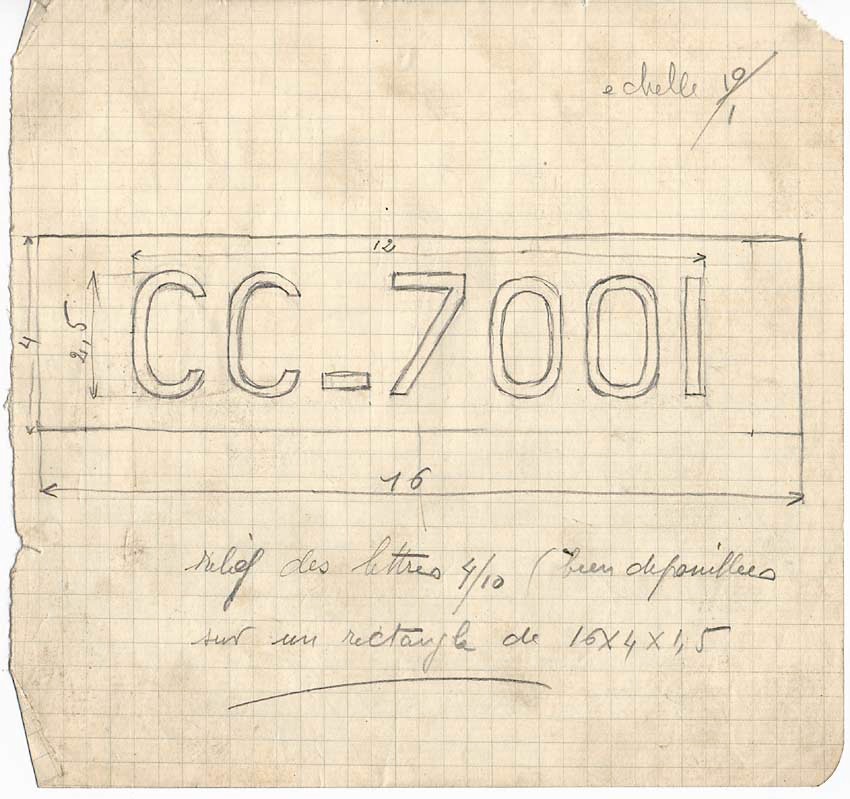 echelle 10/1
12
CC-7001
2,5
4
16
relief des lettres 4/10 (bien depouillees
sur un rectangle de 16x4x1,5